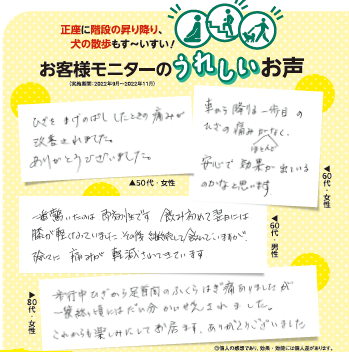 正座に階段の昇り降り、
犬の散歩もす〜いすい!
お客様モニターのうれしいお声
(実施期間:2022年9月〜2022年11月)
ひざをまげのばししたときの痛みが
改善されました。
ありがとうございました。
▲50代・女性
車から降りる一歩目の
ひざの痛みがなく、
ほとんど
安心で効果が出ている
のかなと思います
▲60代・女性
一番驚いたのは即効性です 飲み初めて翌日には
膝が軽くなっていました その後継続して飲んでいますが、
徐々に痛みが軽減されてきています
▲60代・男性
歩行中ひざから足首間のふくらはぎ痛ありましたが
一袋終い頃にはだいぶかいぜんされました。
これからも楽しみにして居ます、ありがとうございました
▶80代・女性
※個人の感想であり、効果・効能には個人差があります。